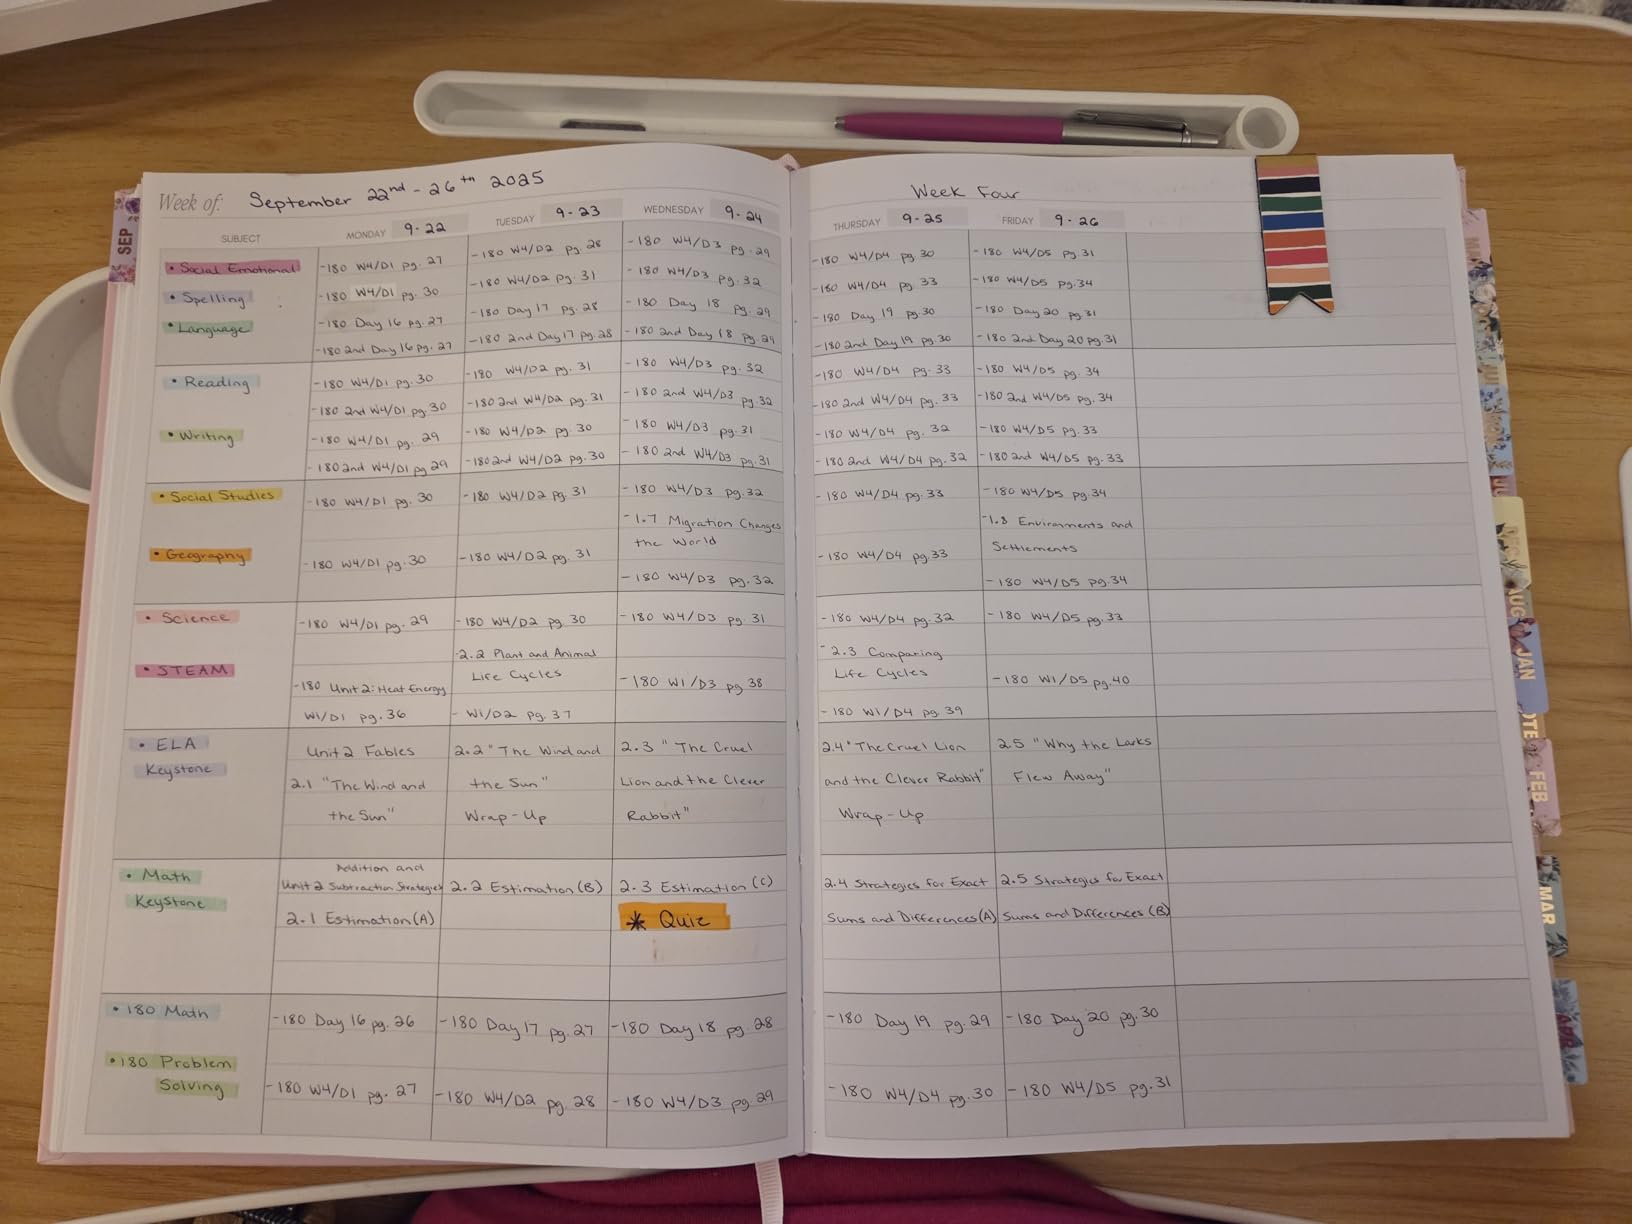 Week of: September 22nd - 26th 2025
Week Four
SUBJECT
MONDAY 9-22
TUESDAY 9-23
WEDNESDAY 9-24
THURSDAY 9-25
FRIDAY 9-26
• Social Emotional
-180 W4/D1 pg. 27
-180 W4/D2 pg. 28
-180 W4/D3 pg. 29
-180 W4/D4 pg 30
-180 W4/D5 pg. 31
• Spelling
-180 W4/D1 pg. 30
-180 W4/D2 pg. 31
-180 W4/D3 pg. 32
-180 W4/D4 pg. 33
-180 W4/D5 pg.34
• Language
-180 Day 16 pg. 27
-180 Day 17 pg. 28
-180 Day 18 pg. 29
-180 Day 19 pg.30
-180 Day 20 pg.31
-180 2nd Day 16 pg. 27
-180 2nd Day 17 pg. 28
-180 2nd Day 18 pg. 29
-180 2nd Day 19 pg. 30
-180 2nd Day 20 pg.31
• Reading
-180 W4/D1 pg. 30
-180 W4/D2 pg. 31
-180 W4/D3 pg. 32
-180 W4/D4 pg. 33
-180 W4/D5 pg. 34
-180 2nd W4/D1 pg. 30
-180 2nd W4/D2 pg. 31
-180 2nd W4/D3 pg.32
-180 2nd W4/D4 pg. 33
-180 2nd W4/D5 pg. 34
• Writing
-180 W4/D1 pg. 29
-180 W4/D2 pg. 30
-180 W4/D3 pg.31
-180 W4/D4 pg. 32
-180 W4/D5 pg.33
-180 2nd W4/D1 pg 29
-180 2nd W4/D2 pg. 30
-180 2nd W4/D3 pg.31
-180 2nd W4/D4 pg. 32
-180 2nd W4/D5 pg. 33
• Social Studies
-180 W4/D1 pg. 30
-180 W4/D2 pg. 31
-180 W4/D3 pg.32
-180 W4/D4 pg.33
-180 W4/D5 pg.34
-1.7 Migration Changes
the World
-1.8 Environments and
Settlements
• Geography
-180 W4/D1 pg.30
-180 W4/D2 pg. 31
-180 W4/D3 pg. 32
-180 W4/D4 pg.33
-180 W4/D5 pg.34
• Science
-180 W4/D1 pg. 29
-180 W4/D2 pg. 30
-180 W4/D3 pg. 31
-180 W4/D4 pg.32
-180 W4/D5 pg.33
-2.2 Plant and Animal
Life Cycles
-2.3 Comparing
Life Cycles
• STEAM
-180 Unit 2: Heat Energy
W1/D1 pg. 36
- W1/D2 pg. 37
-180 W1/D3 pg 38
-180 W1/D4 pg. 39
-180 W1/D5 pg.40
• ELA
Keystone
Unit 2 Fables
2.1 "The Wind and
the Sun"
2.2 "The Wind and
the Sun"
Wrap-Up
2.3 "The Cruel
Lion and the Clever
Rabbit"
2.4 "The Cruel Lion
and the Clever Rabbit"
Wrap-Up
2.5 "Why the Larks
Flew Away"
• Math
Keystone
Addition and
Unit 2 Subtraction Strategies
2.1 Estimation (A)
2.2 Estimation (B)
2.3 Estimation (C)
* Quiz
2.4 Strategies for Exact
Sums and Differences (A)
2.5 Strategies for Exact
Sums and Differences (B)
• 180 Math
-180 Day 16 pg. 26
-180 Day 17 pg. 27
-180 Day 18 pg. 28
-180 Day 19 pg. 29
-180 Day 20 pg. 30
• 180 Problem
Solving
-180 W4/D1 pg. 27
-180 W4/D2 pg. 28
-180 W4/D3 pg. 29
-180 W4/D4 pg. 30
-180 W4/D5 pg. 31
SEP
AUG
JAN
FEB
MAR